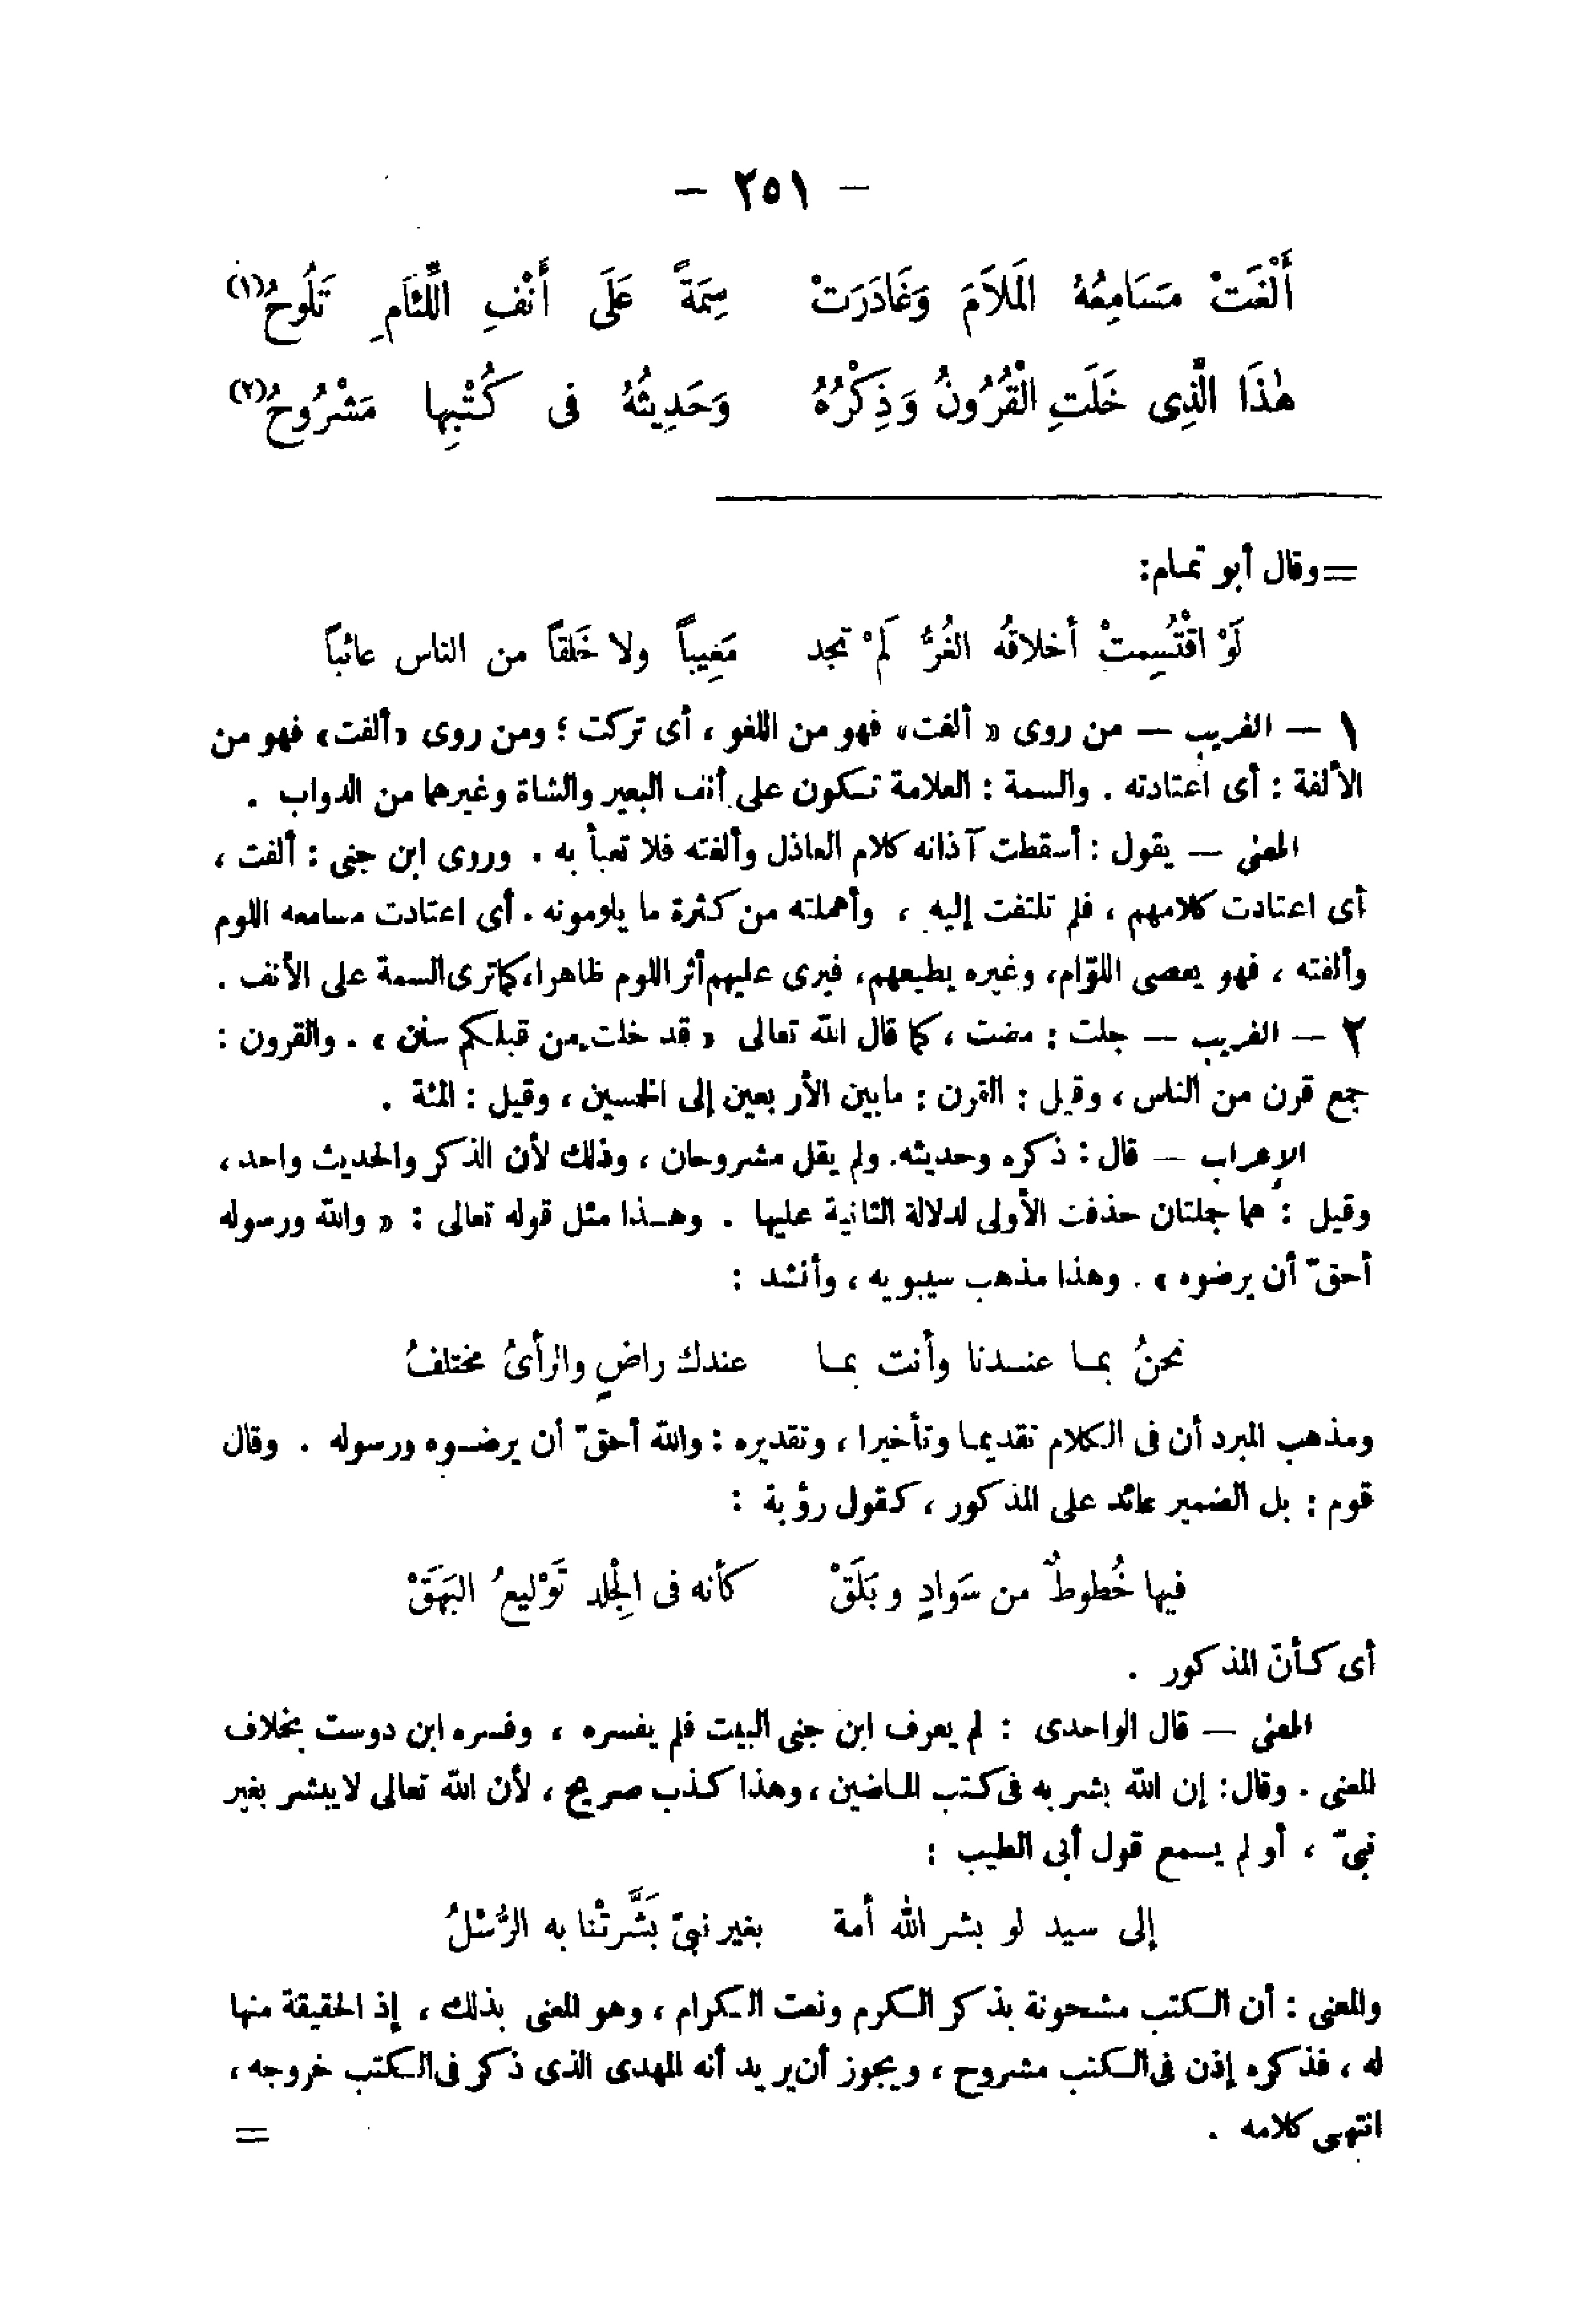 — ٢٥١ —
أَلْغَتْ مَسَامِعُهُ المَلَامَ وَغَادَرَتْ سِمَةً عَلَى أَنْفِ اللِّئَامِ تَلُوحُ(١)
هٰذَا الَّذِى خَلَتِ الْقُرُونُ وَذِكْرُهُ وَحَدِيثُهُ فى كُتْبِها مَشْرُوحُ(٢)
= وقال أبو تمـام:
لَوْ اقْتُسِمتْ أخلاقُه الغُرُّ لَمْ تجد مَغِيباً ولا خَلقاً من الناس عائباً
١ — الغريب — من روى « ألغت» فهو من اللغو ، أى تركت ؛ ومن روى «ألفت» فهو من
الألفة : أى اعتادته . والسمة : العلامة تـكون على أنف البعير والشاة وغيرهما من الدواب .
المعنى — يقول : أسقطت آذانه كلام العاذل وألغته فلا تعبأ به . وروى ابن جنى : ألفت ،
أى اعتادت كلامهم ، فلم تلتفت إليه ، وأهملته من كثرة ما يلومونه . أى اعتادت مسامعه اللوم
وألفته ، فهو يعصى اللوّام، وغيره يطيعهم، فيرى عليهم أثر اللوم ظاهرا، كما ترى السمة على الأنف .
٢ — الغريب — جلت : مضت ، كما قال الله تعالى « قد خلت من قبلـكم سنن » . والقرون :
جمع قرن من الناس ، وقيل : القرن : مابين الأربعين إلى الخمسين ، وقيل : المئة .
الإعراب — قال : ذكره وحديثه. ولم يقل مشروحان ، وذلك لأن الذكر والحديث واحد ،
وقيل : هما جملتان حذفت الأولى لدلالة الثانية عليها . وهـذا مثل قوله تعالى : « والله ورسوله
أحقّ أن يرضوه » . وهذا مذهب سيبويه ، وأنشد :
نحنُ بمـا عنـدنا وأنت بمـا عندك راضٍ والرأىُ مختلفُ
ومذهب المبرد أن فى الـكلام تقديمـا وتأخيرا ، وتقديره : والله أحقّ أن يرضـوه ورسوله . وقال
قوم : بل الضمير عائد على المذكور ، كـقول رؤبة :
فيها خُطوطٌ من سَوادٍ وبَلَقْ كأنه فى الجِلْد تَوْليعُ البَهَقْ
أى كـأنّ المذكور .
المعنى — قال الواحدى : لم يعرف ابن جنى البيت فلم يفسره ، وفسره ابن دوست بخلاف
المعنى . وقال: إن الله بشر به فى كتب المـاضين ، وهذا كـذب صريح ، لأن الله تعالى لا يبشر بغير
نبىّ ، أو لم يسمع قول أبى الطيب :
إلى سيد لو بشر الله أمة بغير نبىّ بَشَّرتْنا به الرُّسْلُ
والمعنى : أن الـكتب مشحونة بذكر الـكرم ونعت الـكرام ، وهو المعنى بذلك ، إذ الحقيقة منها
له ، فذكره إذن فى الـكتب مشروح ، ويجوز أن يريد أنه المهدى الذى ذكر فى الـكتب خروجه ،
انتهى كلامه . =